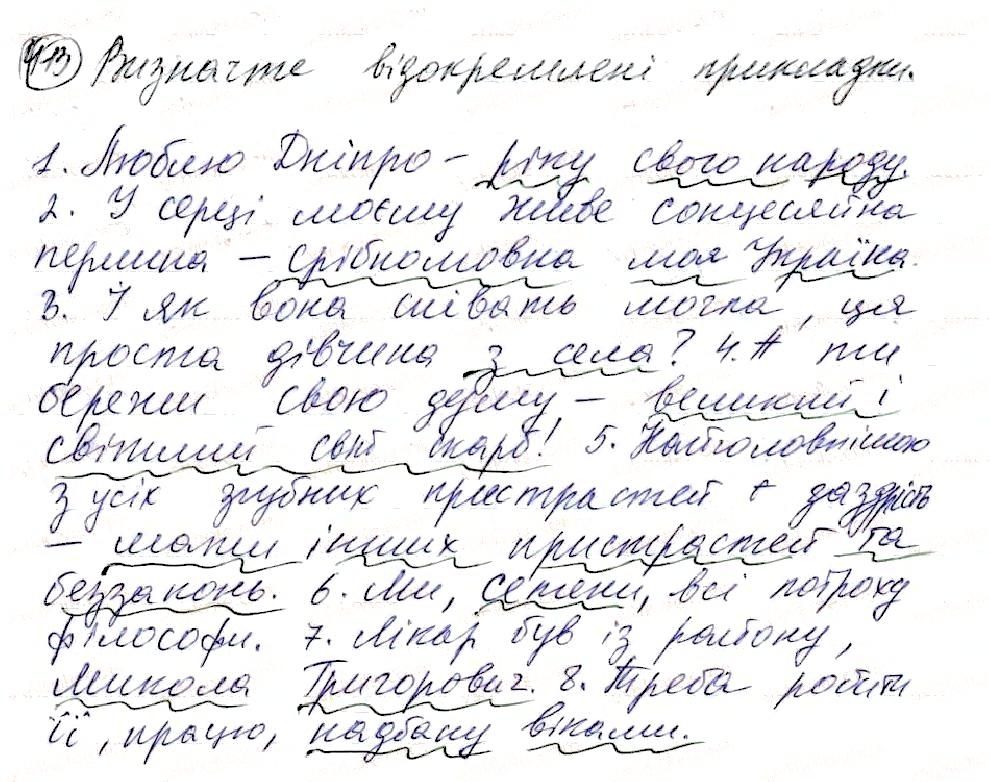 413 Визначте відокремлені прикладки.
1. Люблю Дніпро – ріку свого народу.
2. У серці моєму живе сонцесяйна
перлина – срібномовна моя Україна.
3. І як вона співать могла, ця
проста дівчина з села? 4. А ти
бережи свою душу – великий і
світлий світ скарб! 5. Найголовнішою
з усіх згубних пристрастей є заздрість
– мати інших пристрастей та
беззаконь. 6. Ми, селяни, всі потроху
філософи. 7. Лікар був із району,
Микола Григорович. 8. Треба робити
її, працю, надбану віками.